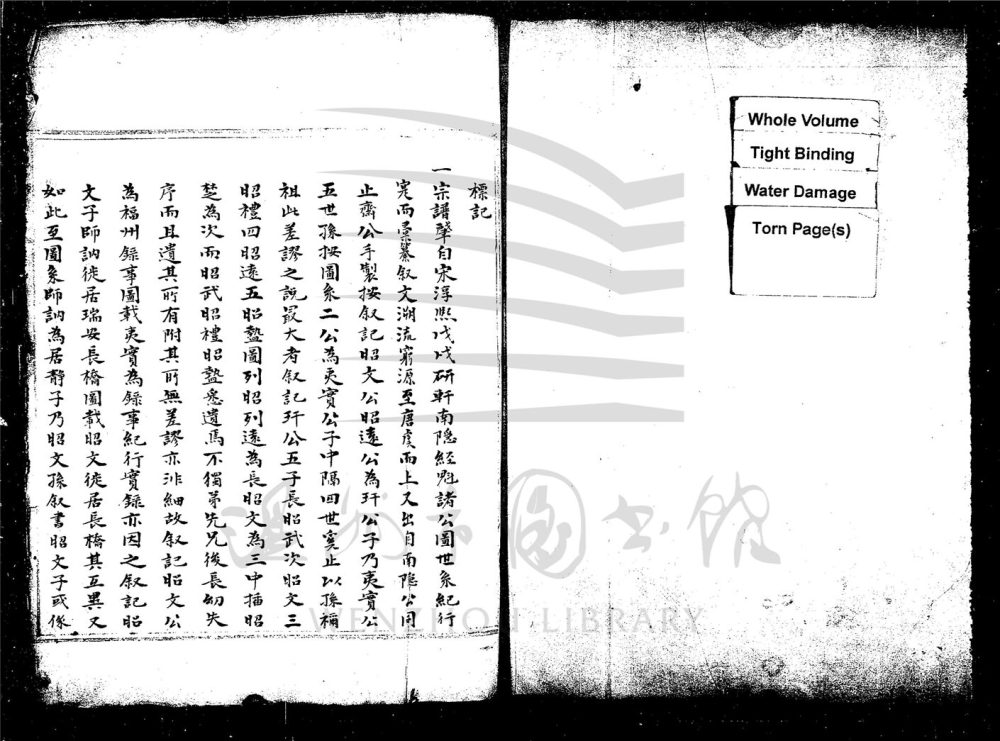 標記
一宗譜肇自宋淳熙戊戌研軒南隐經魁諸公圖世系紀行
寔而纂叙文溯流窮源至唐虞而上又出自南隐公同
止齋公手製按叙記昭文公昭遠公為玕公子乃夷實公
五世孫按圖系二公為夷實公子中隔四世寔止以孫禰
祖此差謬之説最大者叙記玕公五子長昭武次昭文三
昭禮四昭遠五昭盩圖列昭列遠為長昭文為三中插昭
楚為次而昭武昭禮昭盩悉遺焉不獨弟先兄後長幼失
序而且遺其所有附其所無差謬亦非細故叙記昭文公
為福州錄事圖載夷實為錄事紀行實錄亦因之叙記昭
文子師訥徙居瑞安長橋圖載昭文徙居長橋其互異又
如此至圖系師訥為居静子乃昭文孫叙書昭文子或像
Whole Volume
Tight Binding
Water Damage
Torn Page(s)
溫州市圖書館
WENZHOU LIBRARY